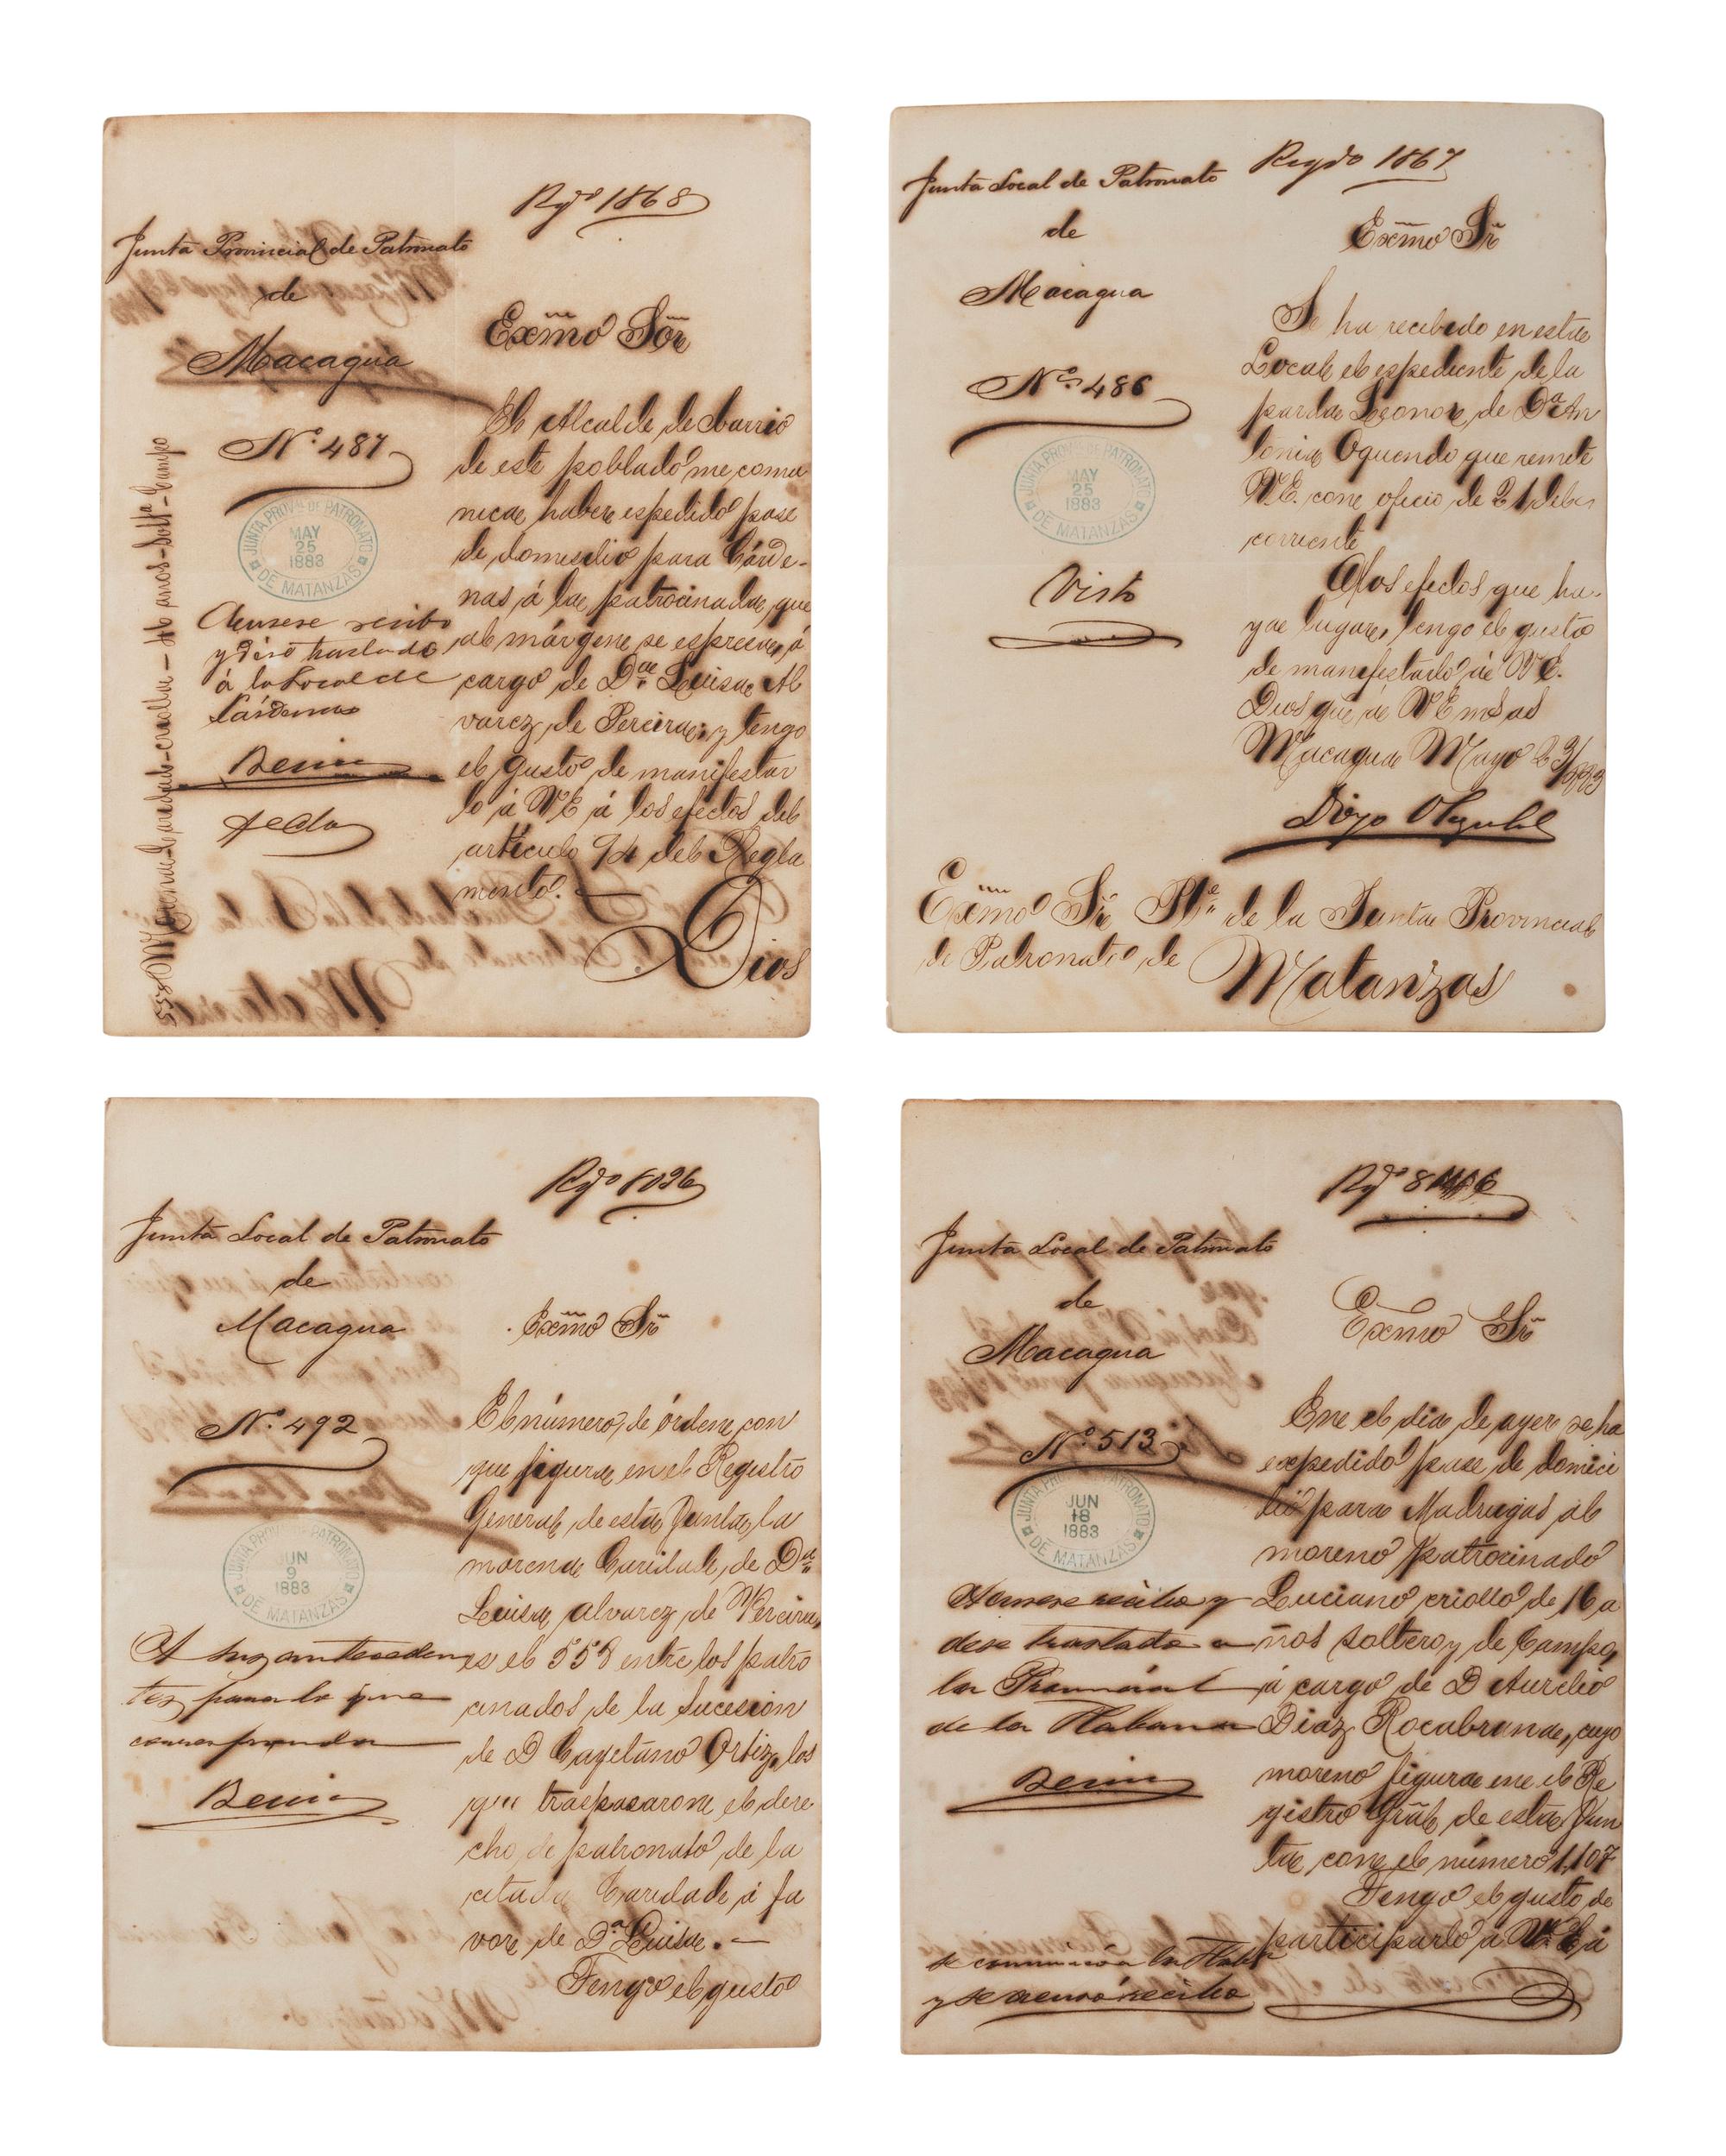 Rgdo 1868
Junta Provincial de Patronato
de
Macagua
Nº 487
JUNTA PROVAL DE PATRONATO
MAY
25
1883
DE MATANZAS
Acusese recibo
y dese traslado
á la Local de
Cárdenas
558 Morena Caridad - criolla - 46 años - Soltª - Campo
Exmo Sor
El Alcalde de barrio
de este poblado me comu
nica haber espedido pase
de domicilio para Cárde-
nas, á la patrocinada, que
al márgen se espresa, á
cargo de Dª Luisa Al
varez de Pereira; y tengo
el gusto de manifestar
lo á VE á los efectos del
artículo 94 del Regla
mento. —
Dios
Junta Local de Patronato
de
Macagua
Nº 486
JUNTA PROVAL DE PATRONATO
MAY
25
1883
DE MATANZAS
Visto
Regdo 1867
Exmo Sr
Se ha recibido en esta
Local el espediente de la
parda Leonor, de Dª An
tonia Oquendo que remite
VE. con oficio de 21 del
corriente
A los efectos que ha-
ya lugar, tengo el gusto
de manifestarlo á VE.
Dios gue á VE ms as
Macagua Mayo 23/883
Diego
Exmo Sr Pte de la Junta Provincial
de Patronato de Matanzas
Rgdo 8036
Junta Local de Patronato
de
Macagua
Nº 492
JUNTA PROVAL DE PATRONATO
JUN
9
1883
DE MATANZAS
A sus anteceden
tes para lo que
corresponda
Exmo Sr
El número, de órden, con
que figura en el Registro
General, de esta Junta, la
morena Caridad, de Dª
Luisa alvarez de Pereira,
es el 558 entre los patro
cinados de la Sucesion
de D Cayetano Ortiz, los
que traspasaron el dere
cho de patronato de la
citada Caridad á fa
vor de Dª Luisa. —
Tengo el gusto
Junta Local de Patronato
de
Macagua
Nº 513
JUNTA PROVAL DE PATRONATO
JUN
18
1883
DE MATANZAS
Acusese recibo y
dese traslado a
la Provincial
de la Habana
se comunicó a la Haba
y se acusó recibo
Exmo Sr
En el dia de ayer se ha
expedido pase de domici
lio para Madrugas al
moreno patrocinado
Luciano criollo de 16 a
ños soltero y de Campo,
á cargo de D Aurelio
Diaz Rocabruna, cuyo
moreno figura en el Re
gistro Gral de esta Jun
ta con el número 1,107
Tengo el gusto de
participarlo á V. E. á